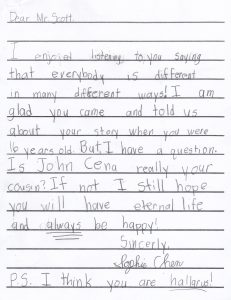 Dear Mr. Scott,
I enjoied listening to you saying
that everybody is different
in many different ways! I am
glad you came and told us
about your story when you were
16 years old. But I have a question.
Is John Cena really your
cousin? If not I still hope
you will have eternal life
and always be happy!
Sincerly,
Sophie Chen
P.S. I think you are hallarus!